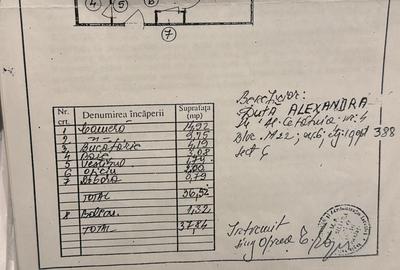 4
5
6
7
Nr. crt. Denumirea încăperii Suprafața (mp)
1 Cameră 14,92
2 —"— 9,75
3 Bucătărie 4,19
4 Baie 3,08
5 Vestibul 1,79
6 Oficiu 2,00
7 Debara 0,79
TOTAL 36,52
8 Balcon 1,32
TOTAL 37,84
Beneficiar:
ALEXANDRA
nr. 4
Bloc M22; sc.6; 388
sect 5
Întocmit
ing Oprea